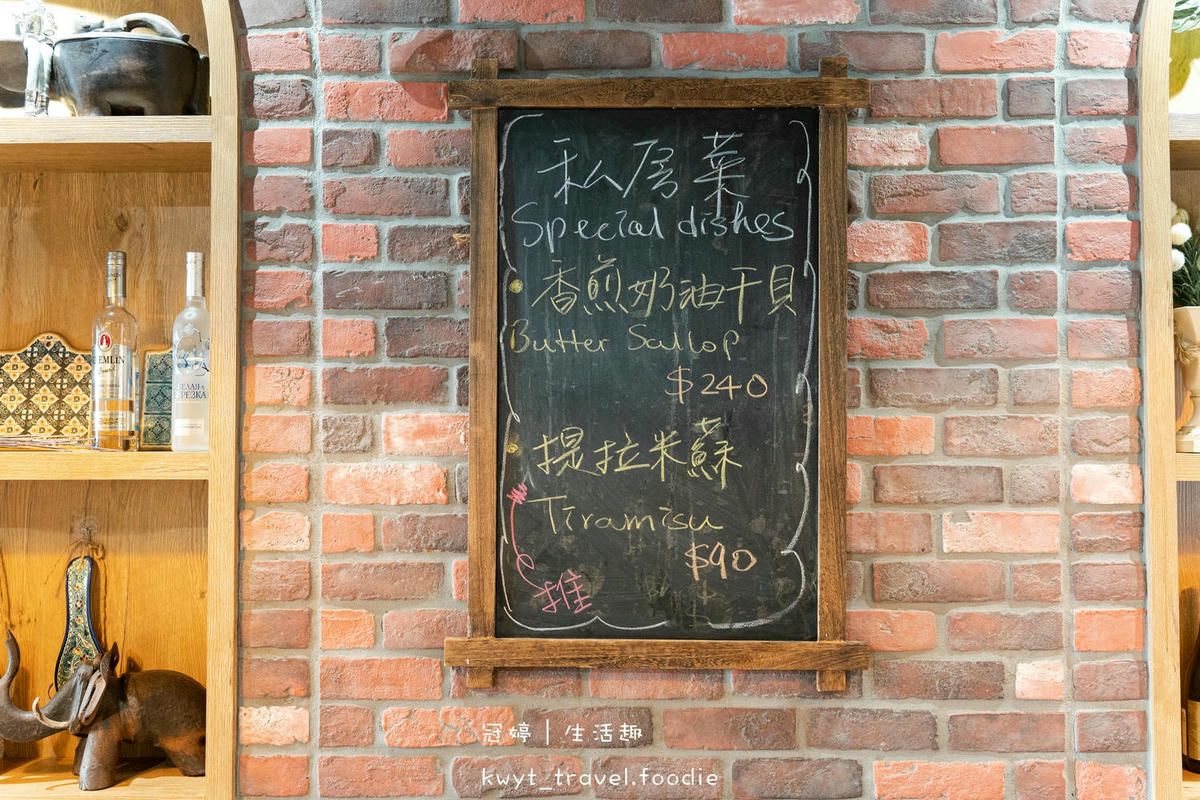 私房菜
Special dishes
香煎奶油干貝
Butter Scallop
$240
提拉米蘇
Tiramisu
$90
推
冠婷 | 生活趣
kwyt_travel.foodie